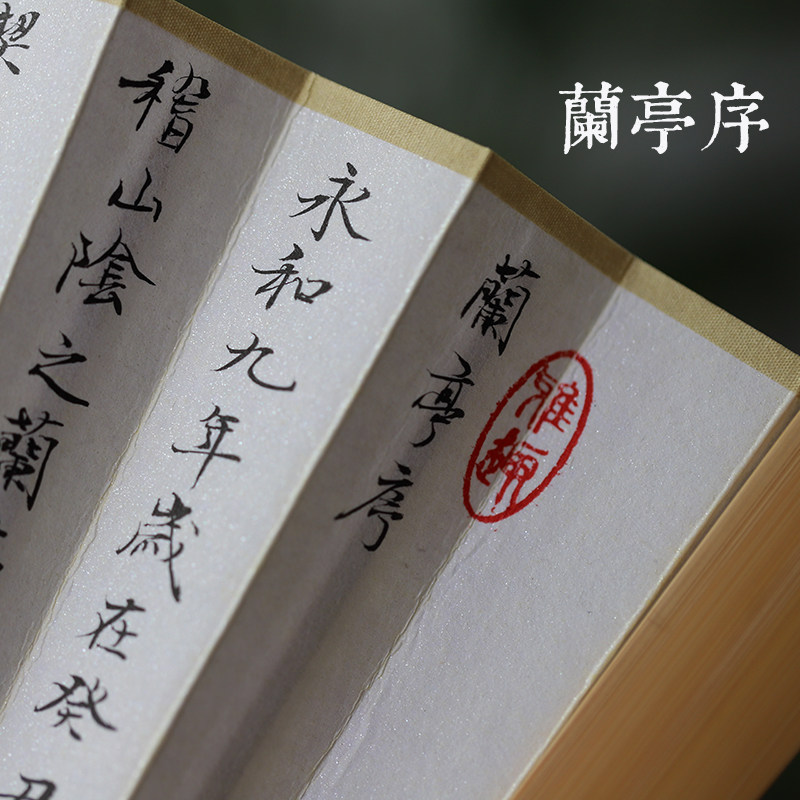 蘭亭序
雅趣
蘭亭序
永和九年歲在癸丑
稽山陰之蘭